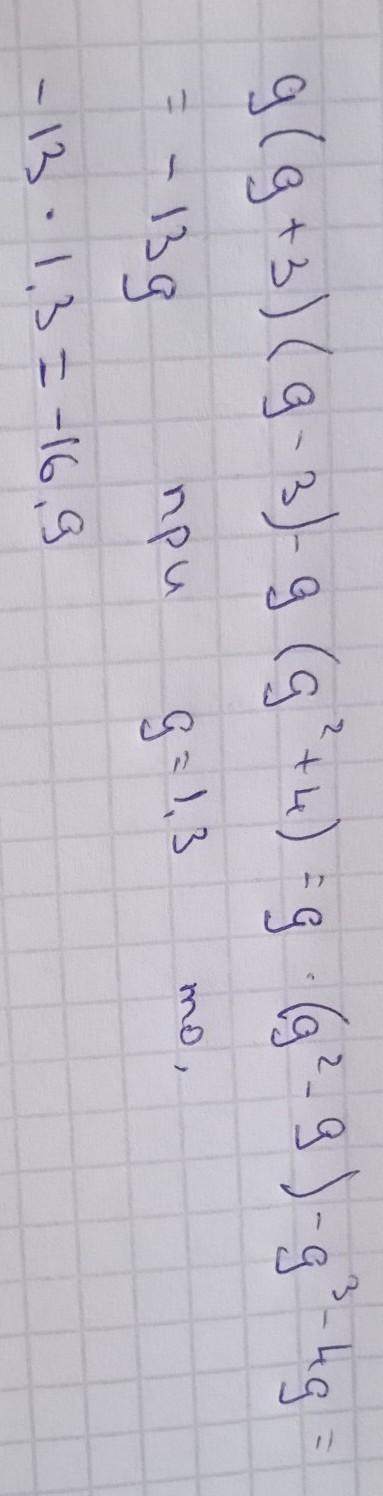 g(g+3)(g-3)-g(g²+4)=g·(g²-9)-g³-4g=
=-13g при g=1,3 то,
-13·1,3=-16,9